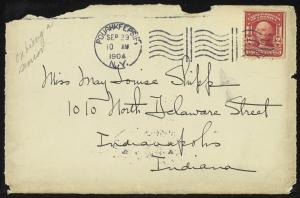 POUGHKEEPSIE
SEP 23
10 AM
1904
N.Y.
Miss May Louise Shipp
1010 North Delaware Street
Indianapolis
Indiana